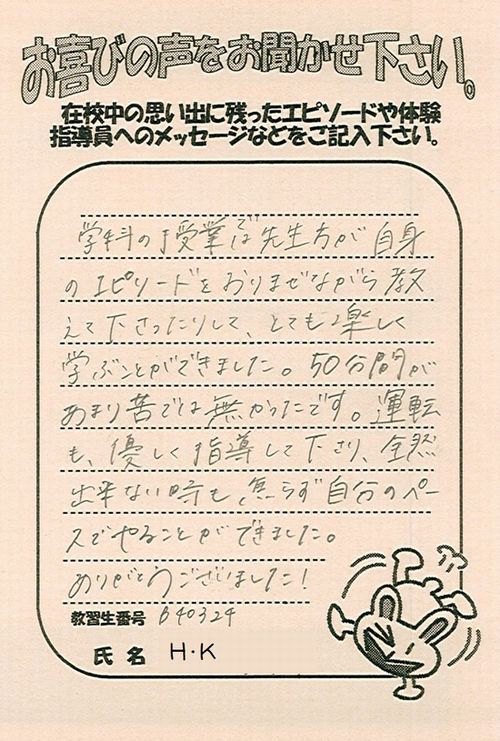 お喜びの声をお聞かせ下さい。
在校中の思い出に残ったエピソードや体験
指導員へのメッセージなどをご記入下さい。
学科の授業では先生方が自身
のエピソードをおりまぜながら教
えて下さったりして、とても楽しく
学ぶことができました。50分間が
あまり苦では無かったです。運転
も、優しく指導して下さり、全然
出来ない時も焦らず自分のペー
スでやることができました。
ありがとうございました!
教習生番号 B40324
氏名 H・K